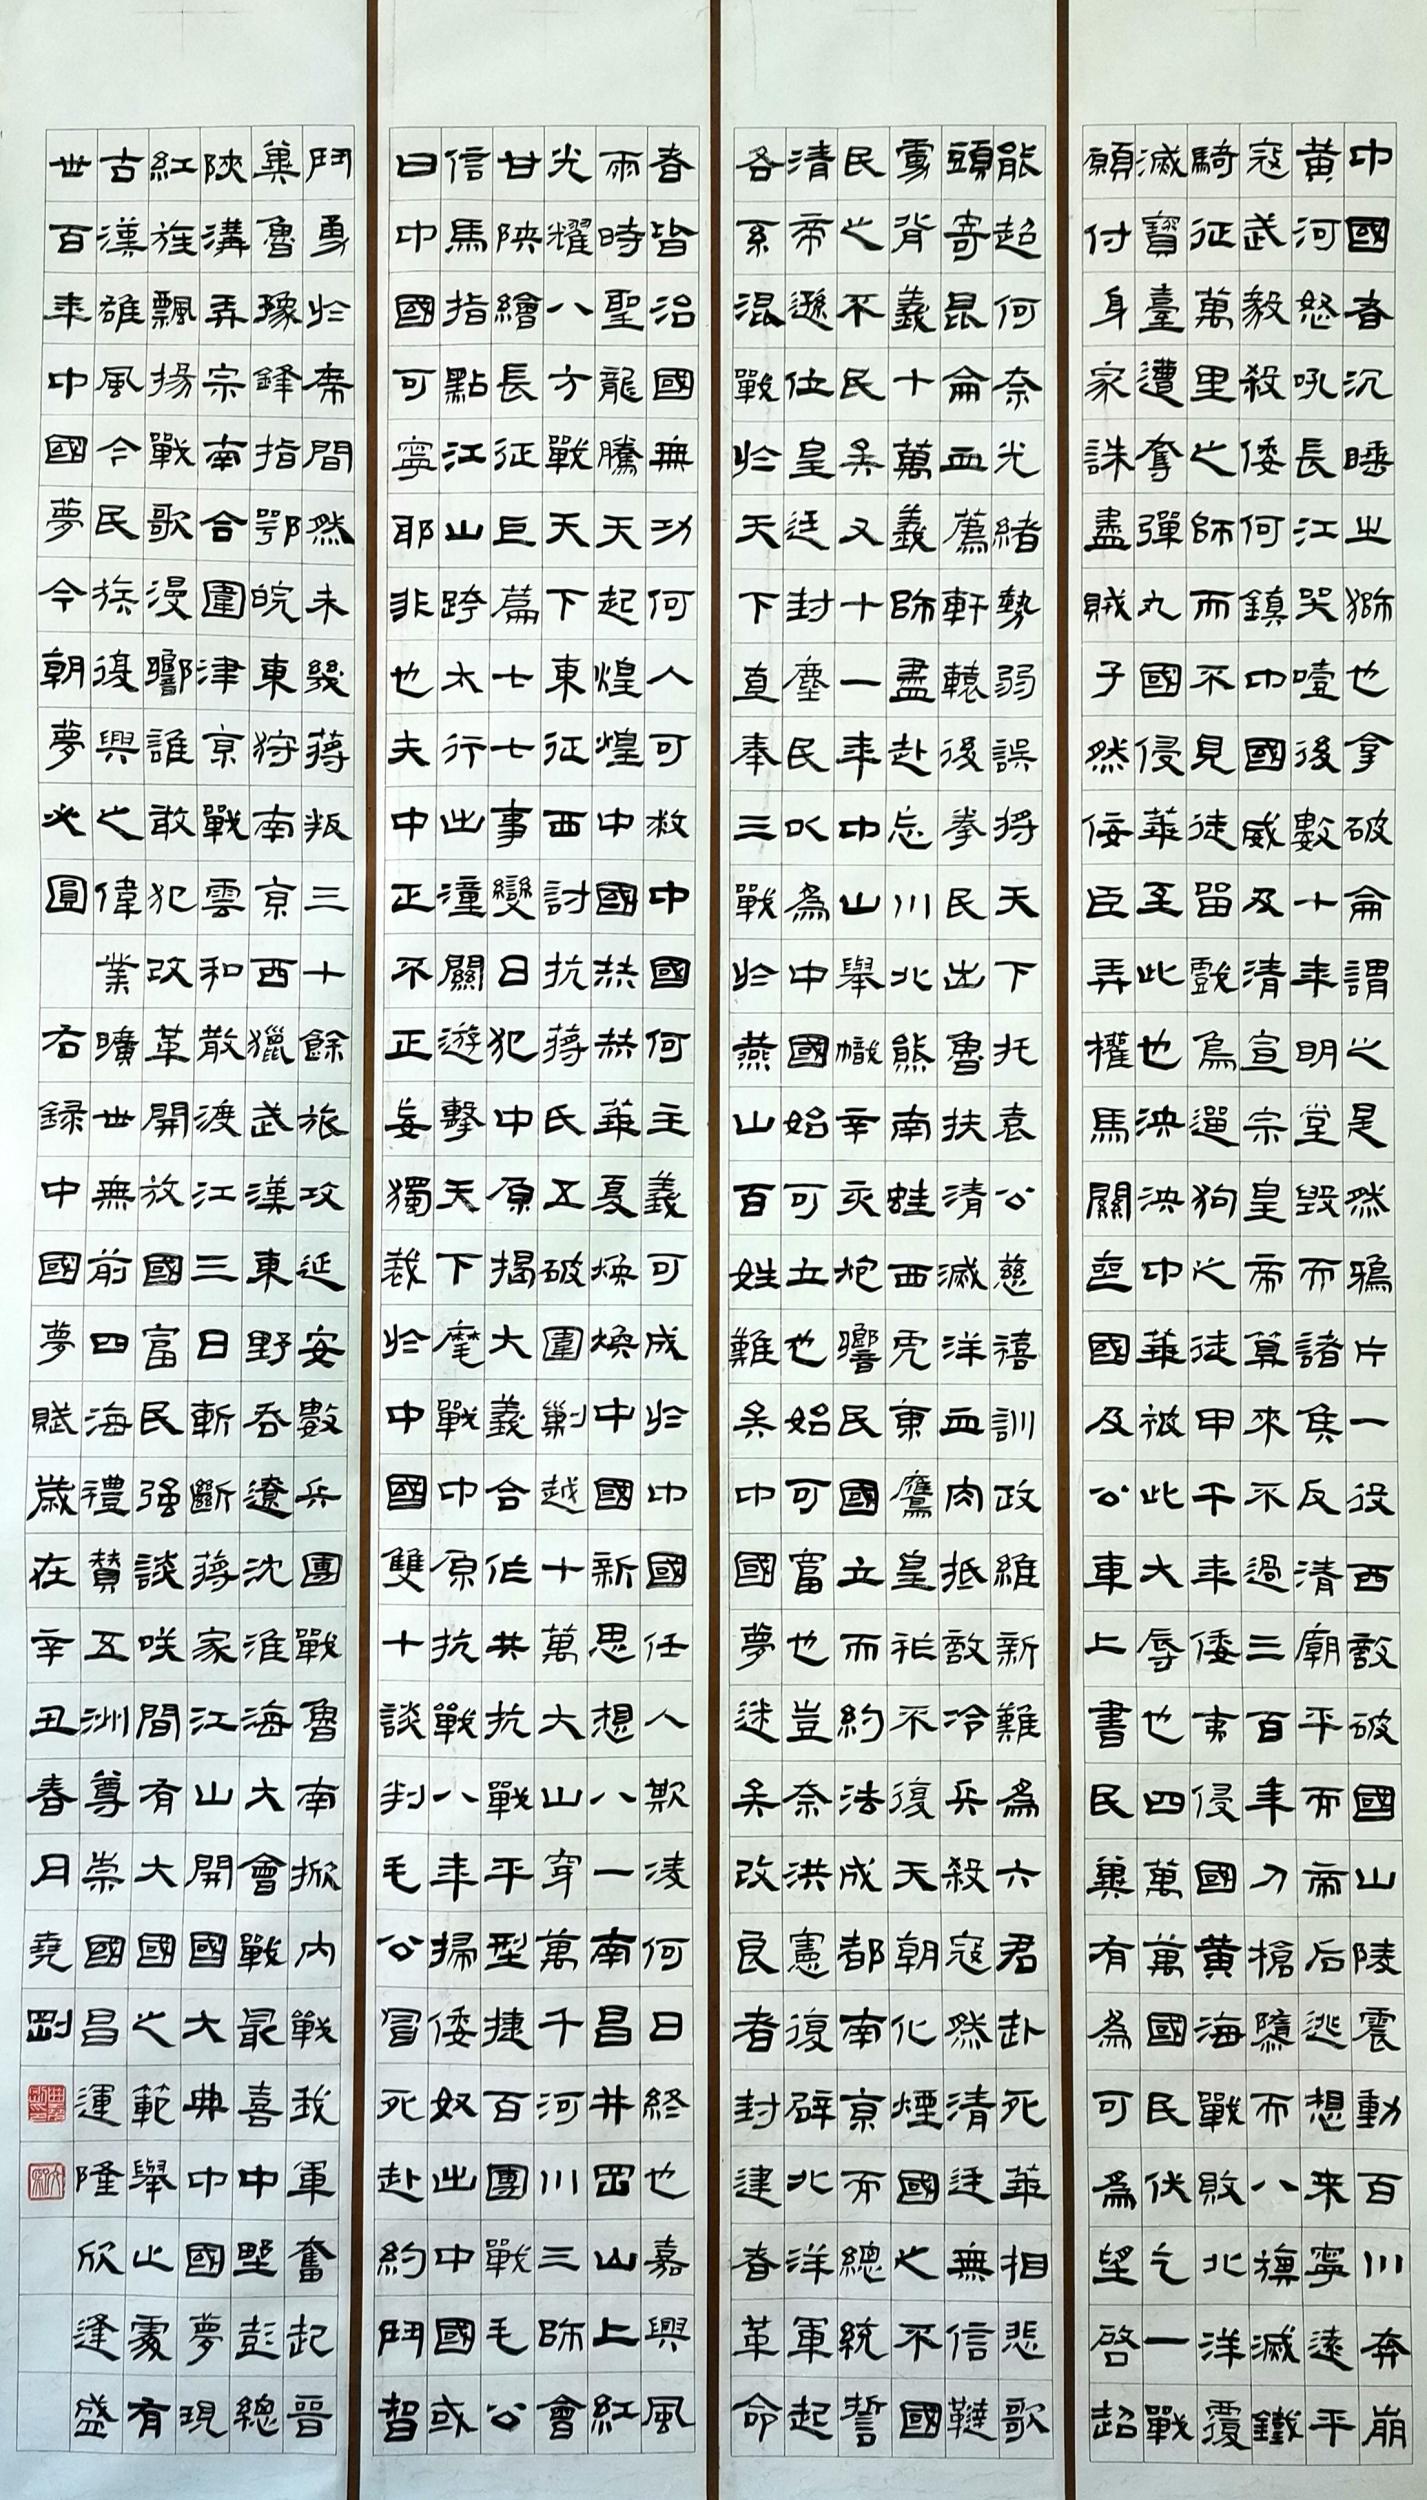 中國者沉睡之獅也拿破侖謂之是然鴉片一役西敵破國山陵震動百川奔崩
黃河怒吼長江哭噎後數十年明堂毀而諸侯反清廟平而帝后逃想来寧遠平
寇武毅殺倭何鎮中國威及清宣宗皇帝算來不過三百年刀槍隳而八旗滅鐵
騎征萬里之師而不見徒留戲鳥遛狗之徒甲午年倭夷侵國黃海戰敗北洋覆
滅寶臺遭奪彈丸國侵華至此也泱泱中華被此大辱也四萬萬國民伏乞一戰
願付身家誅盡賊子然佞臣弄權馬關喪國及公車上書民冀有為可為望啓超
能超何奈光緒勢弱誤將天下托袁公慈禧訓政維新難為六君赴死華相悲歌
頭寄昆侖血薦軒轅後拳民出魯扶清滅洋血肉抵敵冷兵殺寇然清廷無信韃
虜背義十萬義師盡赴忘川北熊南蛙西虎東鷹皇祚不復天朝化煙國之不國
民之不民矣又十一年中山舉幟辛亥炮響民國立而約法成都南京而總統誓
清帝遜位皇廷封塵民以為中國始可立也始可富也豈奈洪憲復辟北洋軍起
各系混戰於天下直奉三戰於燕山百姓難矣中國夢迷矣改良者封建春革命
春皆治國無功何人可救中國何主義可成於中國任人欺凌何日終也嘉興風
雨時聖龍騰天起煌煌中國赫赫華夏煥煥中國新思想八一南昌井岡山上紅
光耀八方戰天下東征西討抗蔣氏五破圍剿越十萬大山穿萬千河川三師會
甘陝繪長征巨篇七七事變日犯中原揭大義合作共抗戰平型捷百團戰毛公
信馬指點江山跨太行出潼關遊擊天下麾戰中原抗戰八年掃倭奴出中國或
曰中國可寧耶非也夫中正不正妄獨裁於中國雙十談判毛公冒死赴約鬥智
鬥勇於席間然未幾蔣叛三十餘旅攻延安數兵團戰魯南掀內戰我軍奮起晉
冀魯豫鋒指鄂皖東狩南京西獵武漢東野吞遼沈淮海大會戰最喜中野彭總
陝溝弄宗南合圍津京戰雲和散渡江三日斬斷蔣家江山開國大典中國夢現
紅旌飄揚戰歌漫響誰敢犯改革開放國富民強談咲間有大國之範舉止處有
古漢雄風今民族復興之偉業曠世無前四海禮贊五洲尊崇國昌運隆欣逢盛
世百年中國夢今朝夢必圓 右録中國夢賦歲在辛丑春月堯剛